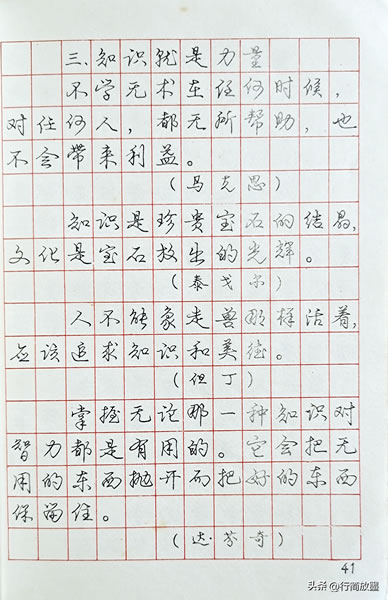 三、知识就是力量
不学无术在任何时候,
对任何人,都无所帮助,也
不会带来利益。
(马克思)
知识是珍贵宝石的结晶,
文化是宝石放出的光辉。
(泰戈尔)
人不能象走兽那样活着,
应该追求知识和美德。
(但丁)
掌握无论那一种知识对
智力都是有用的。它会把无
用的东西抛开而把好的东西
保留住。
(达·芬奇)
41
头条@行商放墨